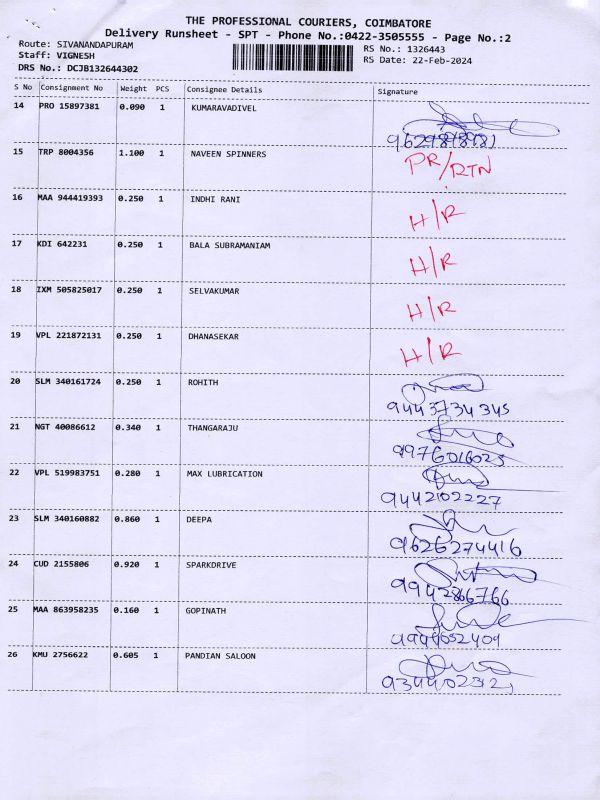 THE PROFESSIONAL COURIERS, COIMBATORE
Delivery Runsheet - SPT - Phone No.:0422-3505555 - Page No.:2
Route: SIVANANDAPURAM
RS No.: 1326443
Staff: VIGNESH
RS Date: 22-Feb-2024
DRS No.: DCJB132644302
S No Consignment No Weight PCS Consignee Details Signature
14 PRO 15897381 0.090 1 KUMARAVADIVEL
15 TRP 8004356 1.100 1 NAVEEN SPINNERS PR/RTN
16 MAA 944419393 0.250 1 INDHI RANI H/R
17 KDI 642231 0.250 1 BALA SUBRAMANIAM H/R
18 IXM 505825017 0.250 1 SELVAKUMAR H/R
19 VPL 221872131 0.250 1 DHANASEKAR H/R
20 SLM 340161724 0.250 1 ROHITH
9443734345
21 NGT 40086612 0.340 1 THANGARAJU
9976016025
22 VPL 519983751 0.280 1 MAX LUBRICATION
9442102227
23 SLM 340160882 0.860 1 DEEPA
9626274416
24 CUD 2155806 0.920 1 SPARKDRIVE
9942866766
25 MAA 863958235 0.160 1 GOPINATH
26 KMU 2756622 0.605 1 PANDIAN SALOON